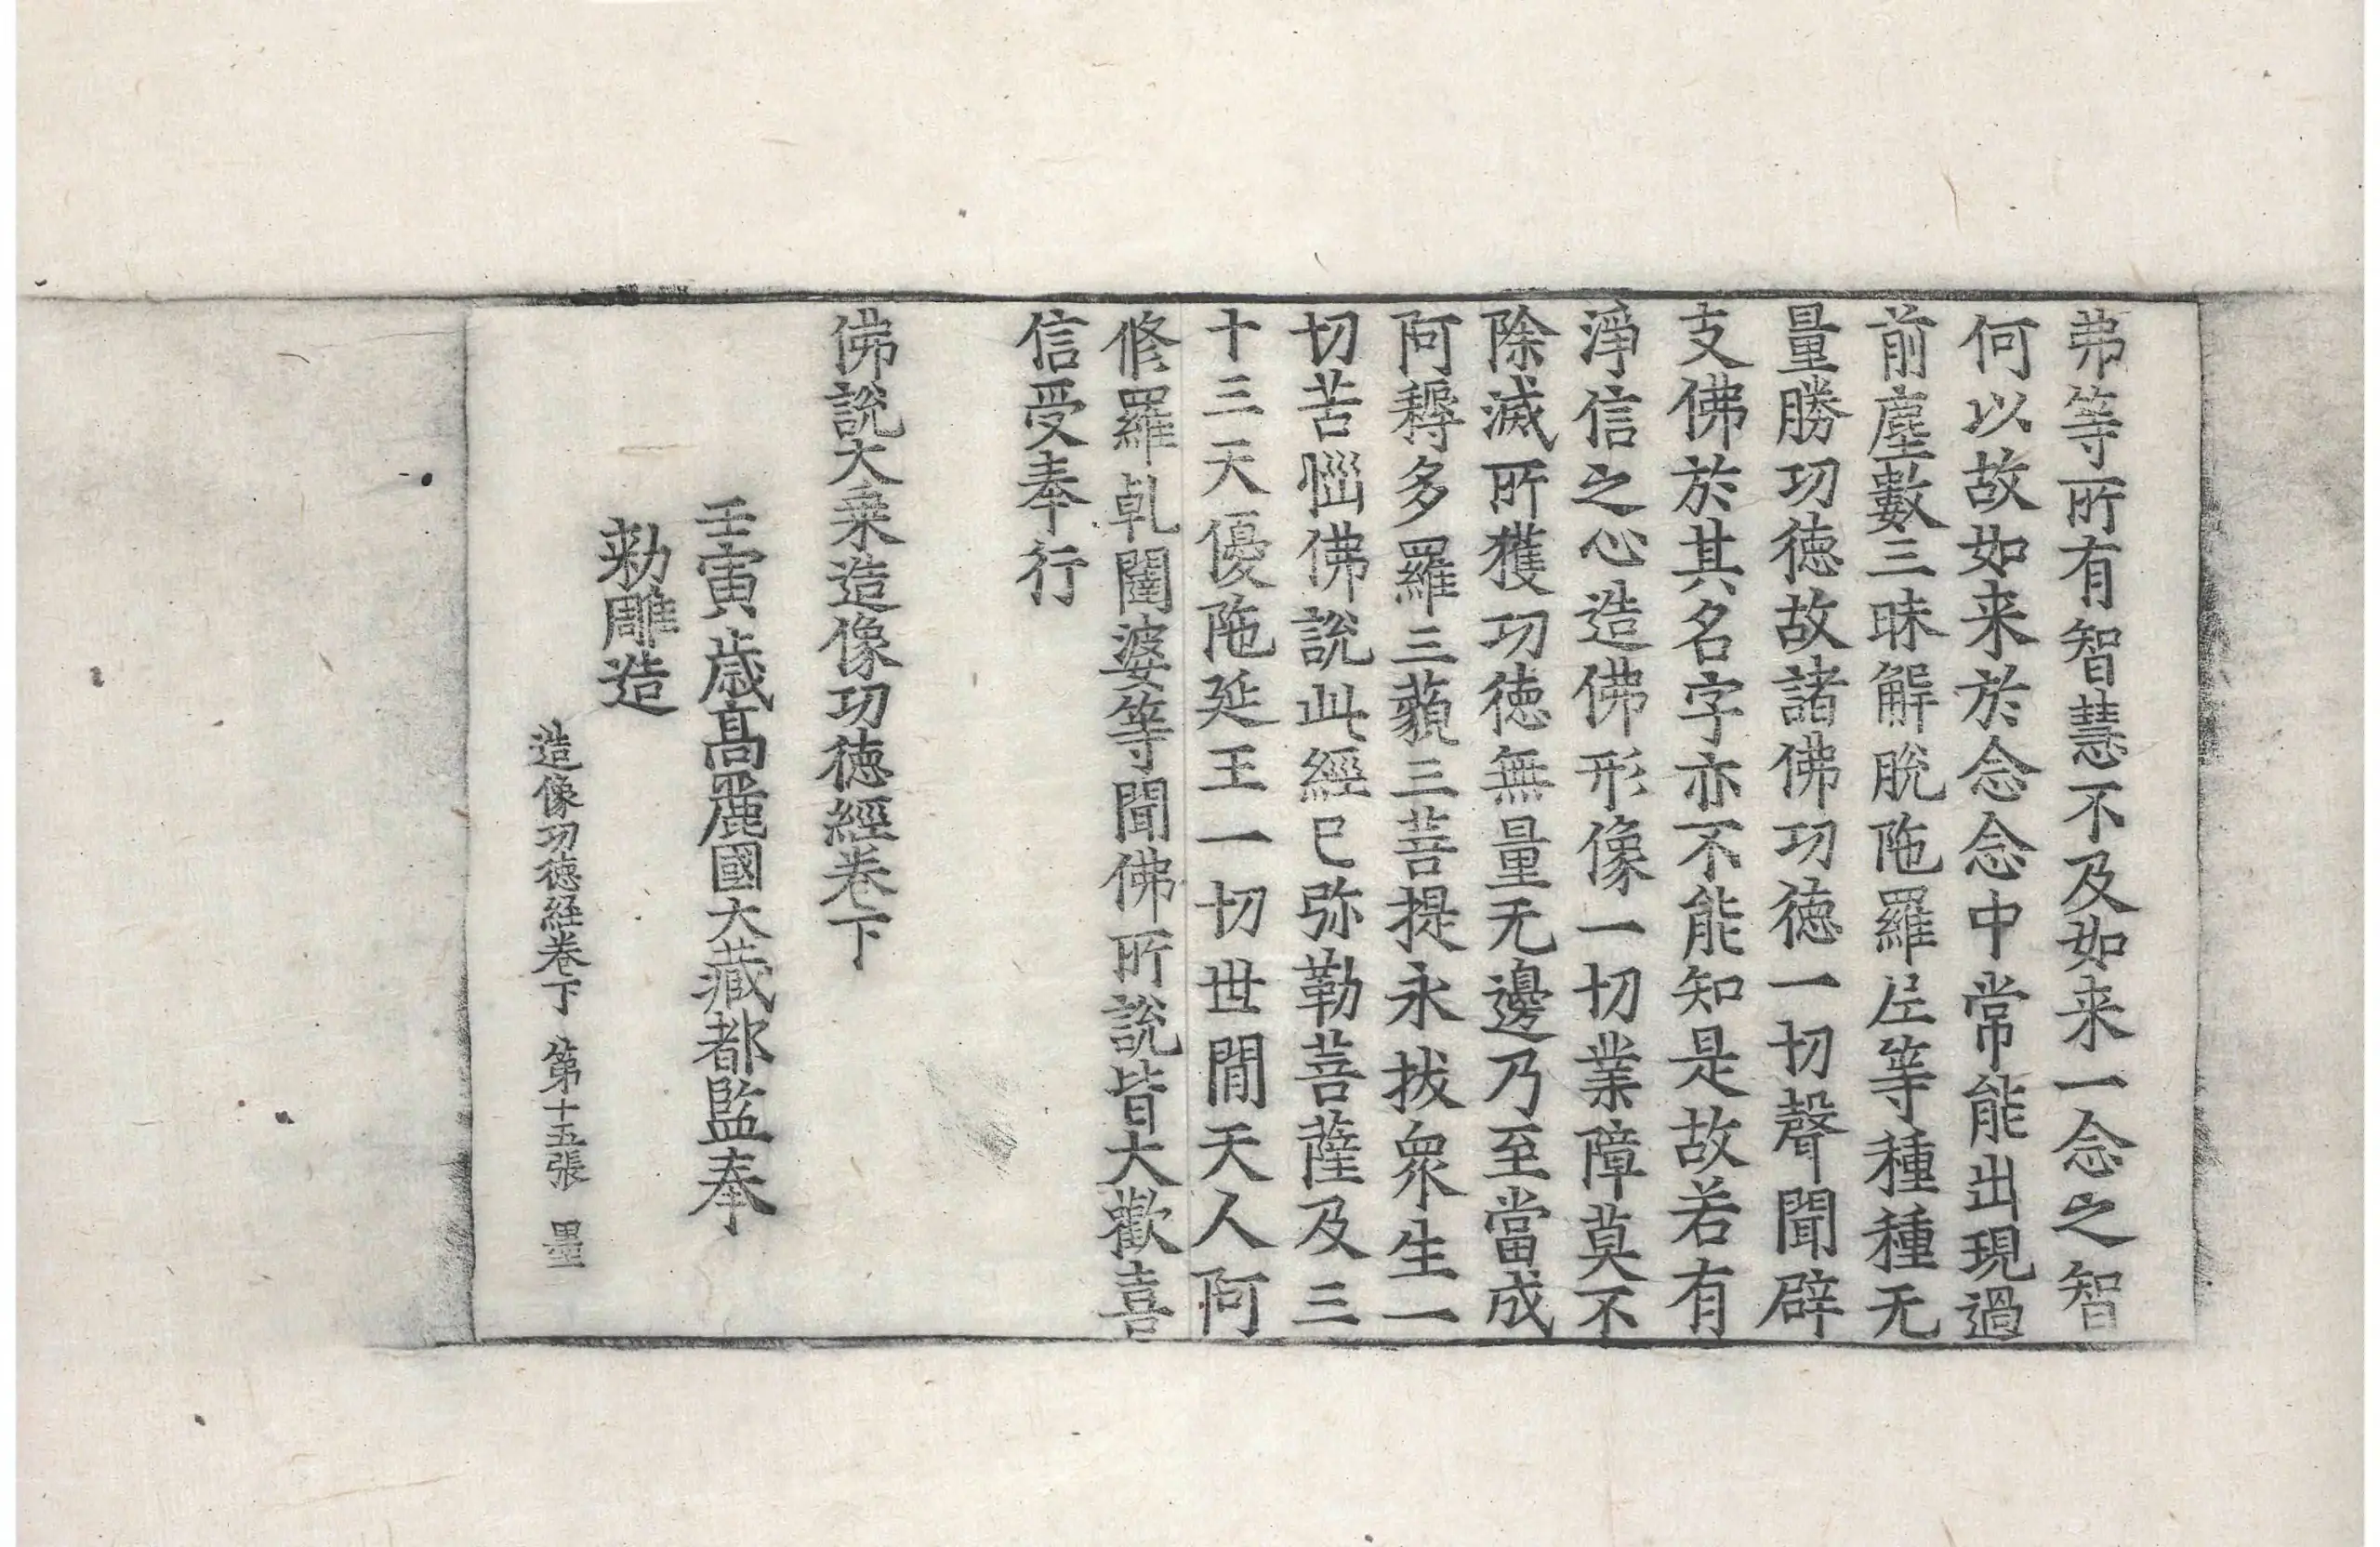 弗等所有智慧不及如来一念之智
何以故如来於念念中常能出現過
前塵數三昧解脫陁羅尼等種種无
量勝功德故諸佛功德一切聲聞辟
支佛於其名字亦不能知是故若有
淨信之心造佛形像一切業障莫不
除滅所獲功德無量无邊乃至當成
阿耨多羅三藐三菩提永拔衆生一
切苦惱佛說此經已弥勒菩薩及三
十三天優陁延王一切世閒天人阿
修羅乹闥婆等聞佛所說皆大歡喜
信受奉行
佛說大乗造像功德經卷下
壬寅歲髙麗國大藏都監奉
勑雕造
造像功德經卷下 第十五張 墨